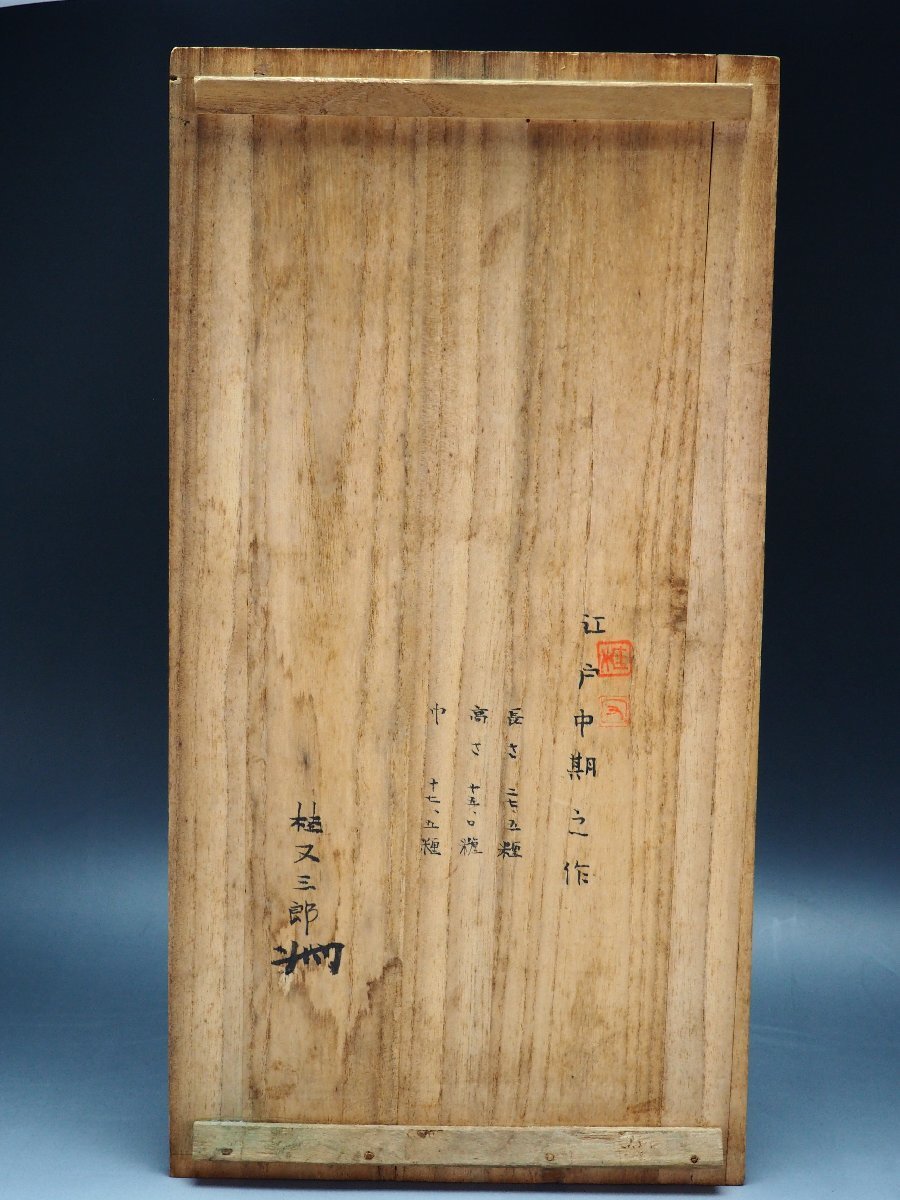 江戸中期之作
桂
又
長さ 二七、五糎
高さ 十五、〇糎
巾 十七、五糎
桂又三郎